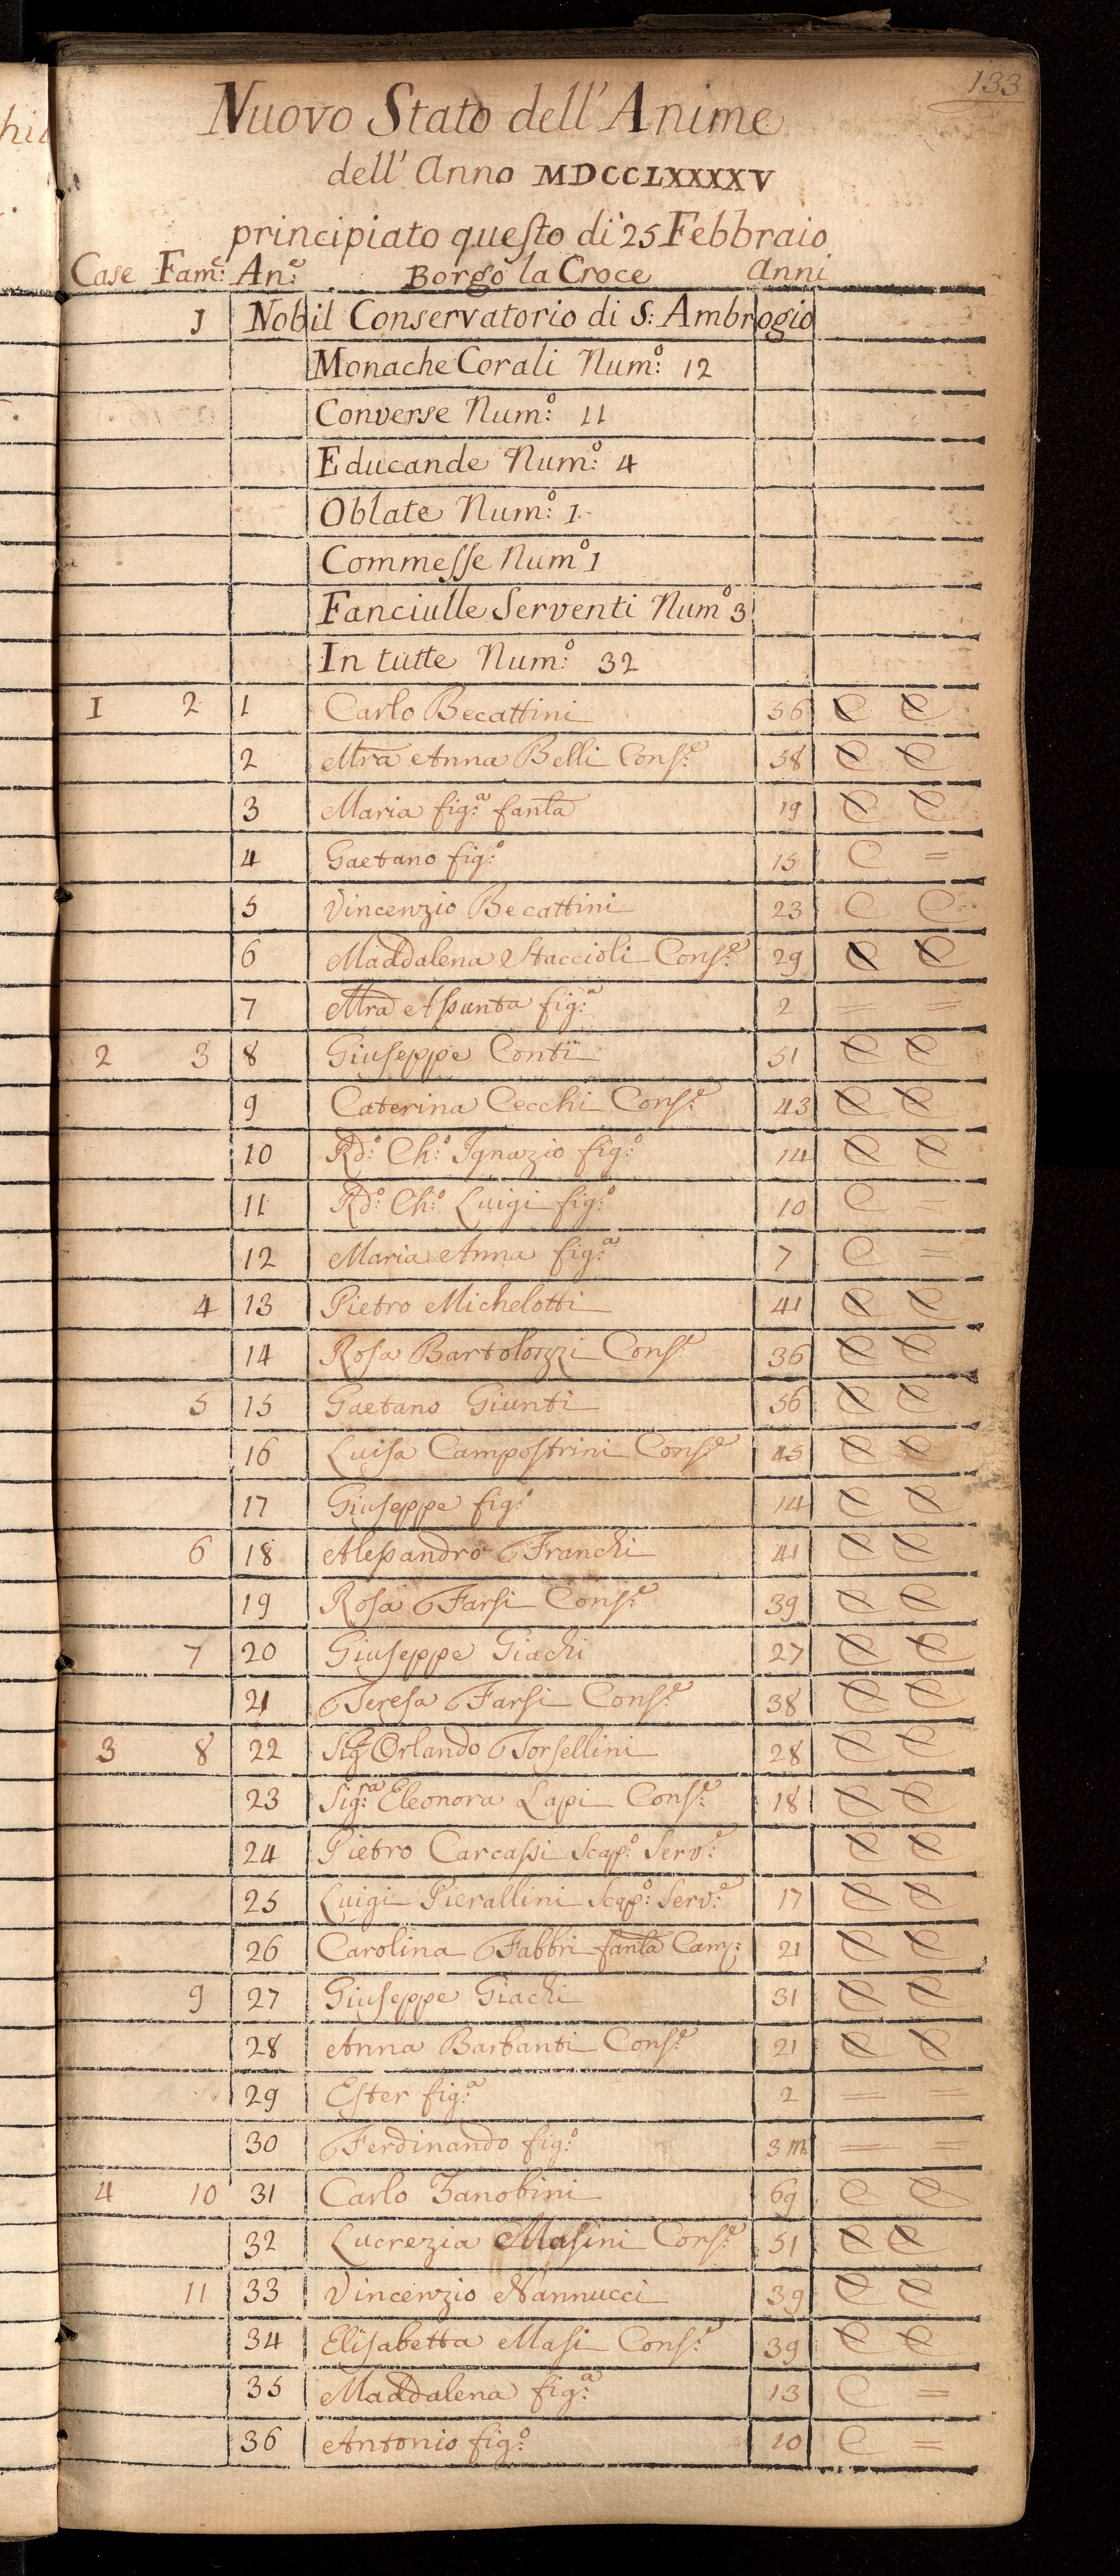 133
Nuovo Stato dell'Anime
dell'Anno MDCCLXXXXV
principiato questo dì 25 Febbraio
Case Fam:e An:e Borgo la Croce Anni
1 Nobil Conservatorio di S: Ambrogio
Monache Corali Num:o 12
Converse Num:o 11
Educande Num:o 4
Oblate Num:o 1
Commesse Num:o 1
Fanciulle Serventi Num:o 3
In tutte Num:o 32
1 2 1 Carlo Becattini 56 C C
2 Mra Anna Belli Cons:e 58 C C
3 Maria fig:a fanla 19 C C
4 Gaetano fig:o 15 C =
5 Vincenzio Becattini 23 C C
6 Maddalena Staccioli Cons:e 29 C C
7 Mra Assunta fig:a 2 = =
2 3 8 Giuseppe Conti 51 C C
9 Caterina Cecchi Cons:e 43 C C
10 Rd:o Ch:o Ignazio fig:o 14 C C
11 Rd:o Ch:o Luigi fig:o 10 C =
12 Maria Anna fig:a 7 C =
4 13 Pietro Michelotti 41 C C
14 Rosa Bartolozzi Cons:e 36 C C
5 15 Gaetano Giunti 56 C C
16 Luisa Campostrini Cons:e 45 C C
17 Giuseppe fig:o 14 C C
6 18 Alessandro Franchi 41 C C
19 Rosa Farsi Cons:e 39 C C
7 20 Giuseppe Giachi 27 C C
21 Teresa Farsi Cons:e 38 C C
3 8 22 Sig:r Orlando Torsellini 28 C C
23 Sig:ra Eleonora Lapi Cons:e 18 C C
24 Pietro Carcassi Scap:o Serv:e C C
25 Luigi Pierallini Scap:o Serv:e 17 C C
26 Carolina Fabbri fanla Cam: 21 C C
9 27 Giuseppe Giachi 31 C C
28 Anna Barbanti Cons:e 21 C C
29 Ester fig:a 2 = =
30 Ferdinando fig:o 3 m = =
4 10 31 Carlo Zanobini 69 C C
32 Lucrezia Masini Cons:e 51 C C
11 33 Vincenzio Nannucci 39 C C
34 Elisabetta Masi Cons:e 39 C C
35 Maddalena fig:a 13 C =
36 Antonio fig:o 10 C =